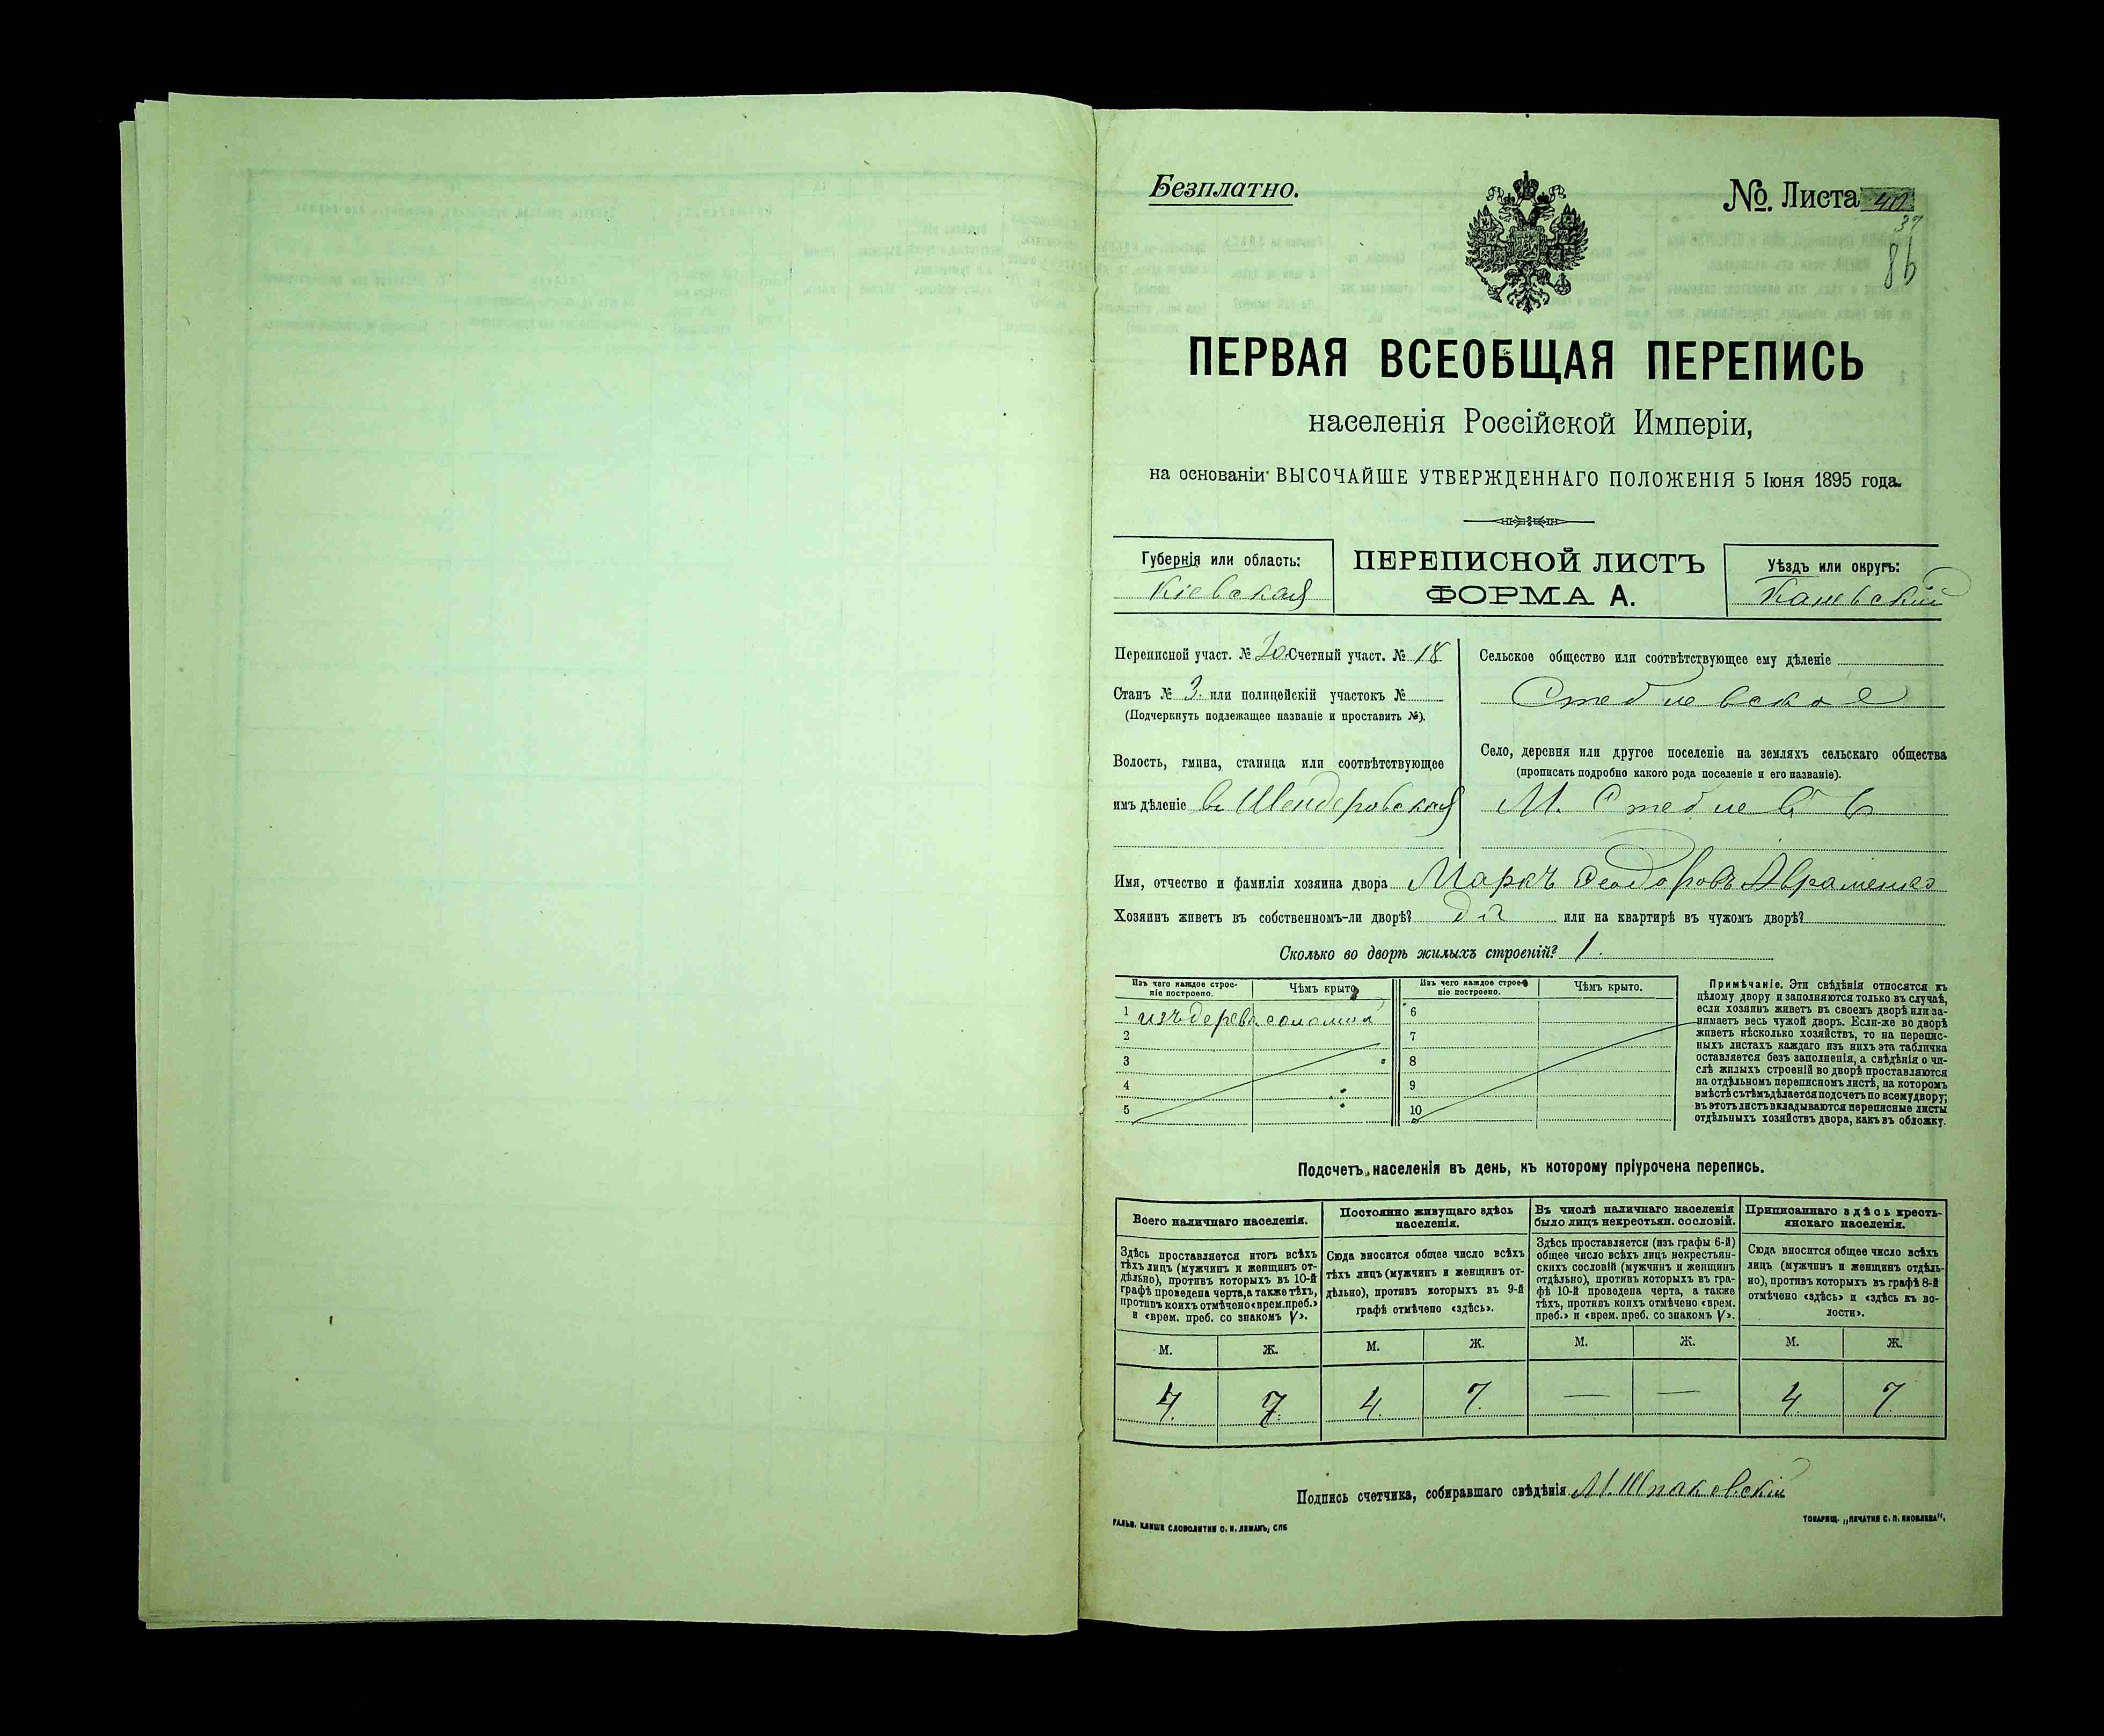 Безплатно.
№ Листа 40
37
86
ПЕРВАЯ ВСЕОБЩАЯ ПЕРЕПИСЬ
населенія Россійской Имперіи,
на основаніи ВЫСОЧАЙШЕ УТВЕРЖДЕННАГО ПОЛОЖЕНІЯ 5 Іюня 1895 года.
Губернія или область:
Кіевская
ПЕРЕПИСНОЙ ЛИСТЪ
ФОРМА А.
Уѣздъ или округъ:
Каневскій
Переписной участ. № Счетный участ. № 18
Станъ № 3. или полицейскій участокъ №
(Подчеркнуть подлежащее названіе и проставить №).
Волость, гмина, станица или соотвѣтствующее
имъ дѣленіе Шендеровская
Сельское общество или соотвѣтствующее ему дѣленіе
Стеблевское
Село, деревня или другое поселеніе на земляхъ сельскаго общества
(прописать подробно какого рода поселеніе и его названіе).
М. Стеблевъ
Имя, отчество и фамилія хозяина двора Маркъ Феодоровъ Авраменко
Хозяинъ живетъ въ собственномъ-ли дворѣ? да или на квартирѣ въ чужомъ дворѣ?
Сколько во дворѣ жилыхъ строеній? 1.
Изъ чего каждое строе-
ніе построено.
Чѣмъ крыто.
1 изъ дерева соломой
2
3
4
5
Изъ чего каждое строе-
ніе построено.
Чѣмъ крыто.
6
7
8
9
10
Примѣчаніе. Эти свѣдѣнія относятся къ
цѣлому двору и заполняются только въ случаѣ,
если хозяинъ живетъ въ своемъ дворѣ или за-
нимаетъ весь чужой дворъ. Если-же во дворѣ
живетъ нѣсколько хозяйствъ, то на перепис-
ныхъ листахъ каждаго изъ нихъ эта табличка
оставляется безъ заполненія, а свѣдѣнія о чи-
слѣ жилыхъ строеній во дворѣ проставляются
на отдѣльномъ переписномъ листѣ, на которомъ
вмѣстѣ съ тѣмъ дѣлается подсчетъ по всему двору;
въ этотъ листъ вкладываются переписные листы
отдѣльныхъ хозяйствъ двора, какъ въ обложку.
Подсчетъ населенія въ день, къ которому пріурочена перепись.
Всего наличнаго населенія.
Здѣсь проставляется итогъ всѣхъ
тѣхъ лицъ (мужчинъ и женщинъ от-
дѣльно), противъ которыхъ въ 10-й
графѣ проведена черта, а также тѣхъ,
противъ коихъ отмѣчено «врем. преб.»
и «врем. преб. со знакомъ V».
М. Ж.
4. 7.
Постоянно живущаго здѣсь
населенія.
Сюда вносится общее число всѣхъ
тѣхъ лицъ (мужчинъ и женщинъ от-
дѣльно), противъ которыхъ въ 9-й
графѣ отмѣчено «здѣсь».
М. Ж.
4. 7.
Въ числѣ наличнаго населенія
было лицъ некрестьян. сословій.
Здѣсь проставляется (изъ графы 6-й)
общее число всѣхъ лицъ некрестьян-
скихъ сословій (мужчинъ и женщинъ
отдѣльно), противъ которыхъ въ гра-
фѣ 10-й проведена черта, а также
тѣхъ, противъ коихъ отмѣчено «врем.
преб.» и «врем. преб. со знакомъ V».
М. Ж.
— —
Приписаннаго здѣсь кресть-
янскаго населенія.
Сюда вносится общее число всѣхъ
лицъ (мужчинъ и женщинъ отдѣль-
но), противъ которыхъ въ графѣ 8-й
отмѣчено «здѣсь» и «здѣсь къ во-
лости».
М. Ж.
4. 7.
Подпись счетчика, собиравшаго свѣдѣнія М. Шпаковскій
ГАЛЬВ. КЛИШЕ СЛОВОЛИТНИ О. И. ЛЕМАНЪ, СПБ
ТОВАРИЩ. „ПЕЧАТНЯ С. П. ЯКОВЛЕВА".